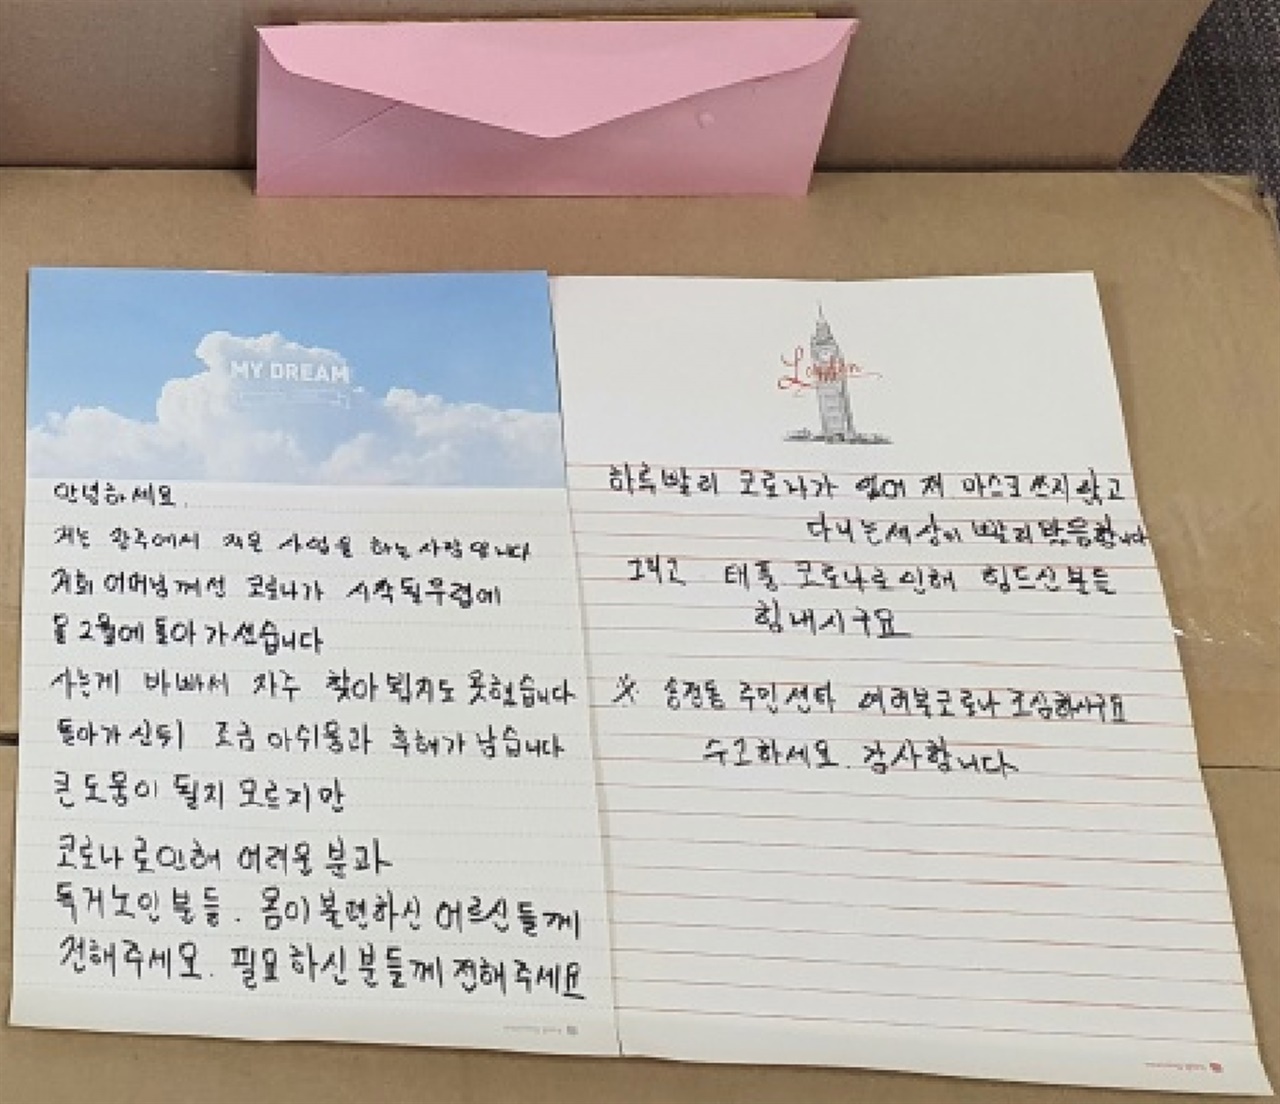 MY DREAM
안녕하세요.
저는 광주에서 작은 사업을 하는사람 입니다
저희 어머님께선 코로나가 시작될무렵에
올 2월에 돌아가셨습니다
사는게 바빠서 자주 찾아뵙지도 못했습니다
돌아가신뒤 조금 아쉬움과 후회가 남습니다
큰 도움이 될지 모르지만
코로나로인해 어려운 분과
독거노인분들. 몸이불편하신 어르신들께
전해주세요. 필요하신분들께 전해주세요
London
하루빨리 코로나가 없어져 마스크쓰지않고
다니는세상이 빨리왔음합니다
그리고 태풍 코로나로인해 힘드신분들
힘내시구요
※ 송정동 주민센타 여러분코로나 조심하시구요
수고하세요. 감사합니다